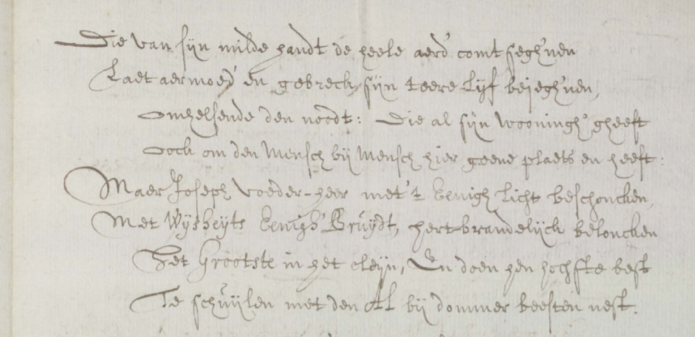 Die van sijn milde handt de heele aerd' comt segh'nen
Laet aermoed' en gebreck sijn teere Lijf bejegh'nen,
Omhelsende den noodt: Die al sijn wooningh' gheeft
Oock om den Mensch bij Mensch hier geene plaets en heeft:
Maer Joseph voeder-heer met 't Eeuigh licht beschoncken,
Met Wijsheyts Eeuigh' Bruydt, hertbrandelijck beloncken
Het Grootste in het cleijn, En doen hen hooghste best
Te schuijlen met den Al bij dommer beesten nest.